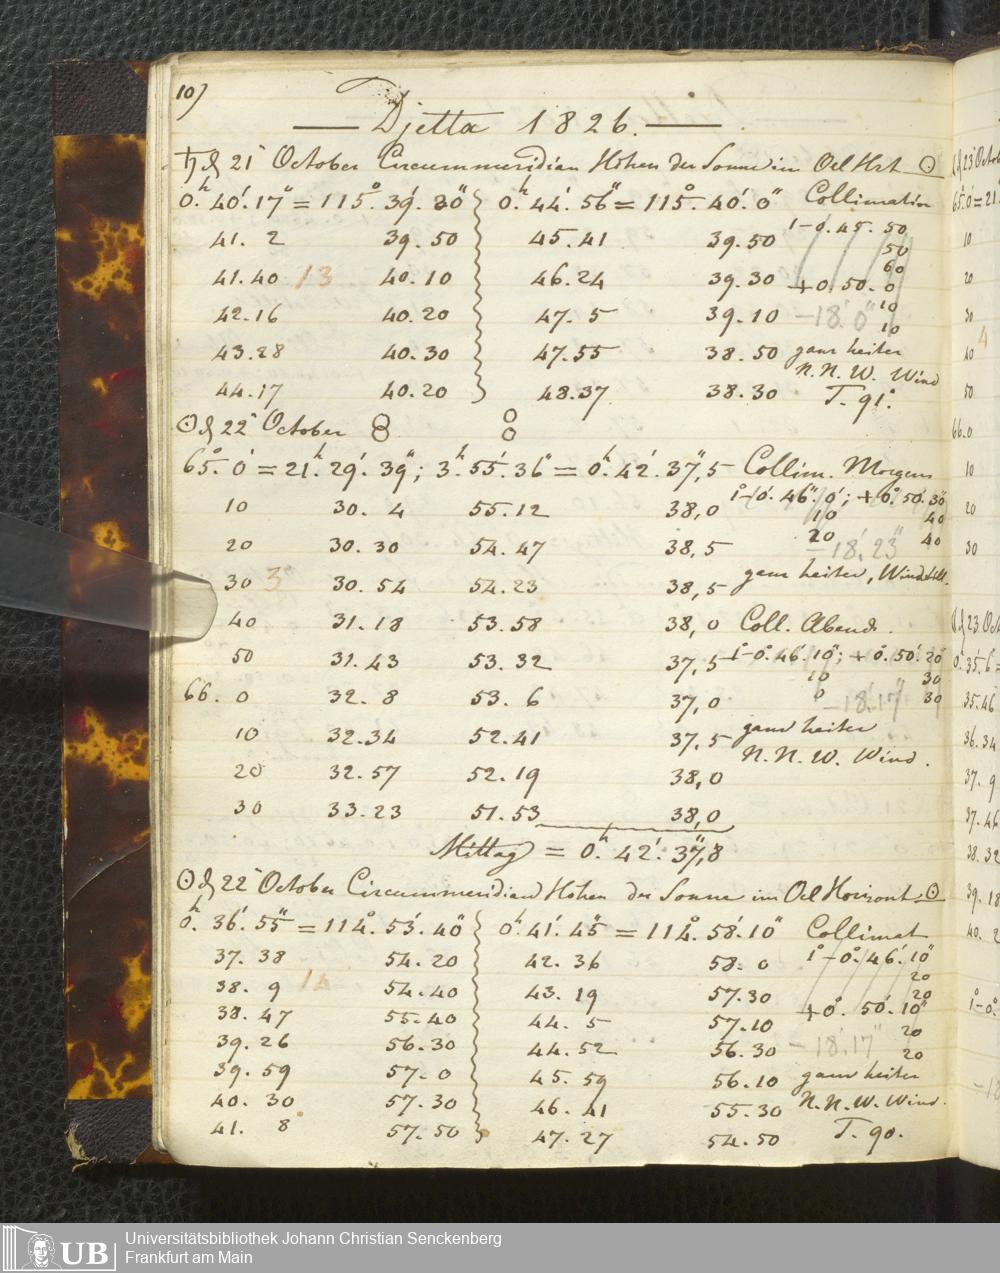 10)
Djetta 1826.
♄ d 21t October Circummeridian Höhen der Sonne im Oel Hrt ☉
0h. 40'. 17" = 115°. 39'. 30" 0h. 44'. 56" = 115°. 40'. 0" Collimation
41. 2 39. 50 45. 41 39. 50 1°-0. 45. 50
50
41. 40 13 40. 10 46. 24 39. 30 60
+0. 50. 0
42. 16 40. 20 47. 5 39. 10 -18'. 0" 10
10
43. 28 40. 30 47. 55 38. 50 ganz heiter
N. N. W. Wind
44. 17 40. 20 48. 37 38. 30 T. 91°.
☉ d 22t October 8 8
65°. 0' = 21h. 29'. 39"; 3h. 55'. 36" = 0h. 42'. 37",5 Collim. Morgens
1°-0°. 46'. 0"; +0°. 50'. 30"
10 30. 4 55. 12 38,0 10 40
20 30. 30 54. 47 38,5 20 40
-18'. 23"
30 3 30. 54 54. 23 38,5 ganz heiter, Windstill.
40 31. 18 53. 58 38,0 Coll. Abends.
50 31. 43 53. 32 37,5 1°-0°. 46'. 10"; +0°. 50'. 20"
10 30
66. 0 32. 8 53. 6 37,0 0 -18'. 17" 30
10 32. 34 52. 41 37,5 ganz heiter
N. N. W. Wind.
20 32. 57 52. 19 38,0
30 33. 23 51. 53 38,0
Mittag = 0h. 42'. 37",8
☉ d 22t October Circummeridian Höhen der Sonne im Oel Horizont ☉
0h. 36'. 55" = 114°. 53'. 40" 0h. 41'. 45" = 114°. 58'. 10" Collimat
37. 38 54. 20 42. 36 58. 0 1°-0°. 46'. 10"
20
38. 9 14 54. 40 43. 19 57. 30 20
38. 47 55. 40 44. 5 57. 10 +0°. 50'. 10"
20
39. 26 56. 30 44. 52 56. 30 -18'. 17" 20
39. 59 57. 0 45. 59 56. 10 ganz heiter
40. 30 57. 30 46. 41 55. 30 N. N. W. Wind.
41. 8 57. 50 47. 27 54. 50 T. 90.
65°. 0' = 21
10
20
30
4
40
50
66. 0
10
20
30
0h. 35'. 6" =
35. 46
36. 34
37. 9
37. 46
38. 32
39. 18
40. 2
1°-0°.
UB
Universitätsbibliothek Johann Christian Senckenberg
Frankfurt am Main